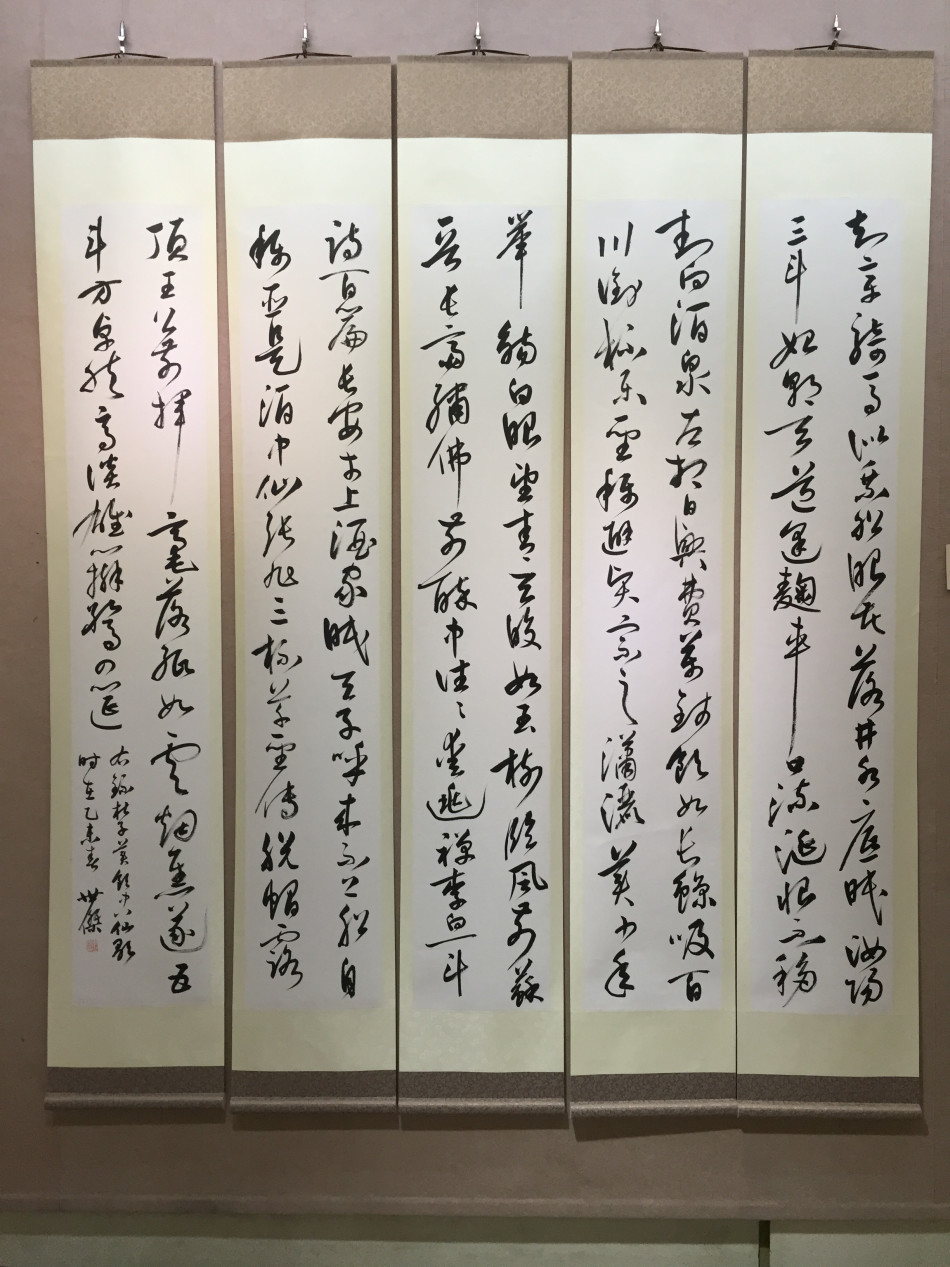 知章騎馬似乘船眼花落井水底眠汝陽
三斗始朝天道逢麴車口流涎恨不移
封向酒泉左相日興費萬錢飲如長鯨吸百
川銜杯樂聖稱避賢宗之瀟灑美少年
舉觴白眼望青天皎如玉樹臨風前蘇
晉長齋繡佛前醉中往〻愛逃禪李白一斗
詩百篇長安市上酒家眠天子呼來不上船自
稱臣是酒中仙張旭三杯草聖傳脫帽露
頂王公前揮毫落紙如雲煙焦遂五
斗方卓然高談雄辯驚四筵
右錄杜子美飲中八仙歌
时在乙未春 世傑